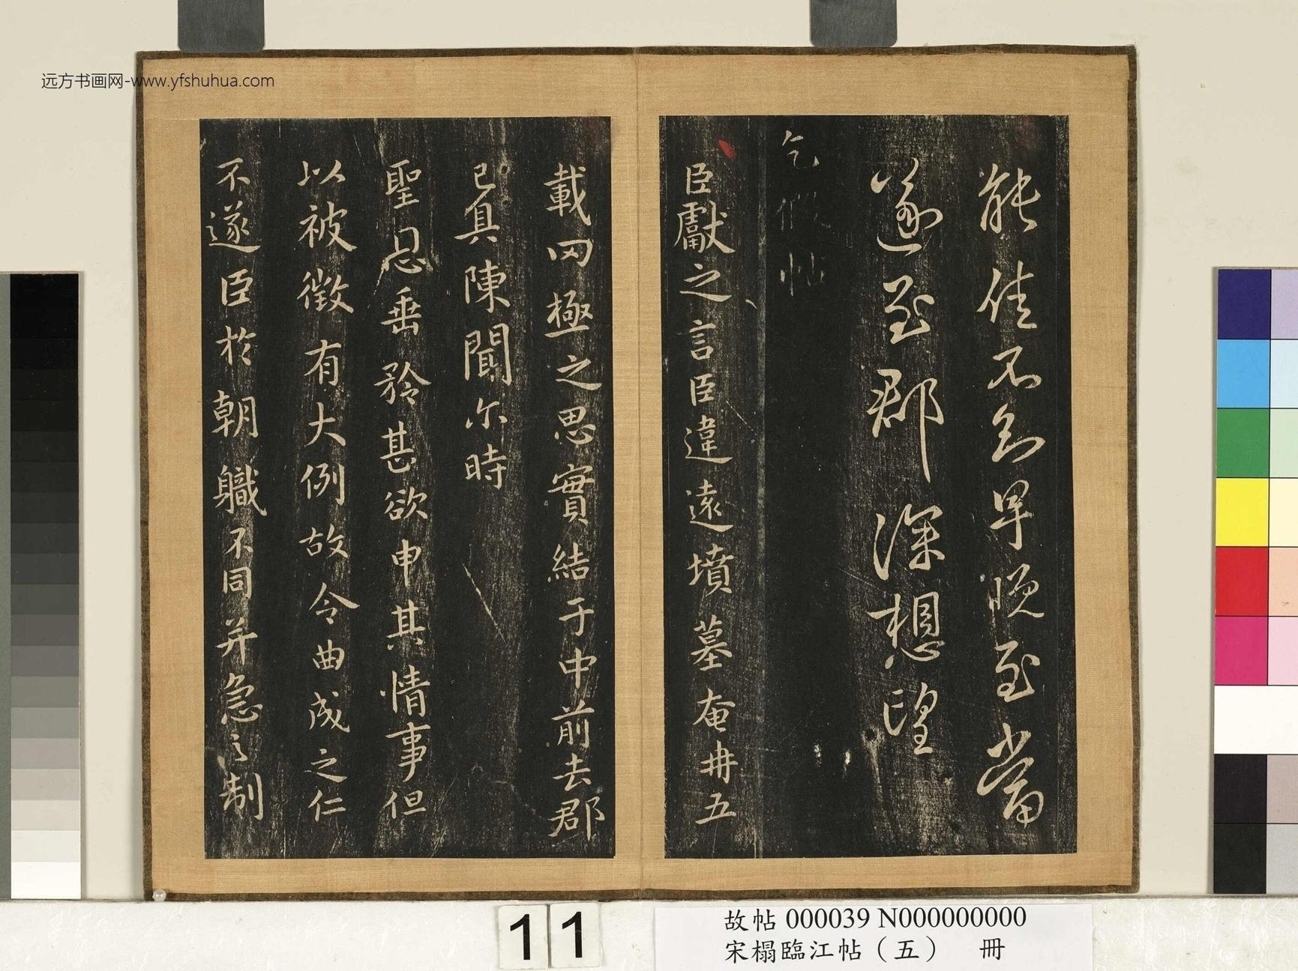 远方书画网-www.yfshuhua.com
能佳不知早晚至當
遂至郡深想望
乞假帖
臣獻之言臣違遠墳墓奄冉五
載罔極之思實結于中前去郡
已具陳聞尔時
聖恩垂矜甚欲申其情事但
以被徵有大例故令曲成之仁
不遂臣於朝職不同并急之制
11
故帖 000039 N000000000
宋榻臨江帖（五） 冊